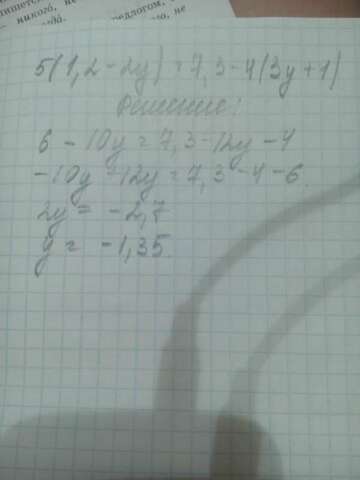 никого, не
предлогом,
5(1,2-2y)=7,3-4(3y+1)
Решение:
6-10y=7,3-12y-4
-10y+12y=7,3-4-6
2y=-2,7
y=-1,35